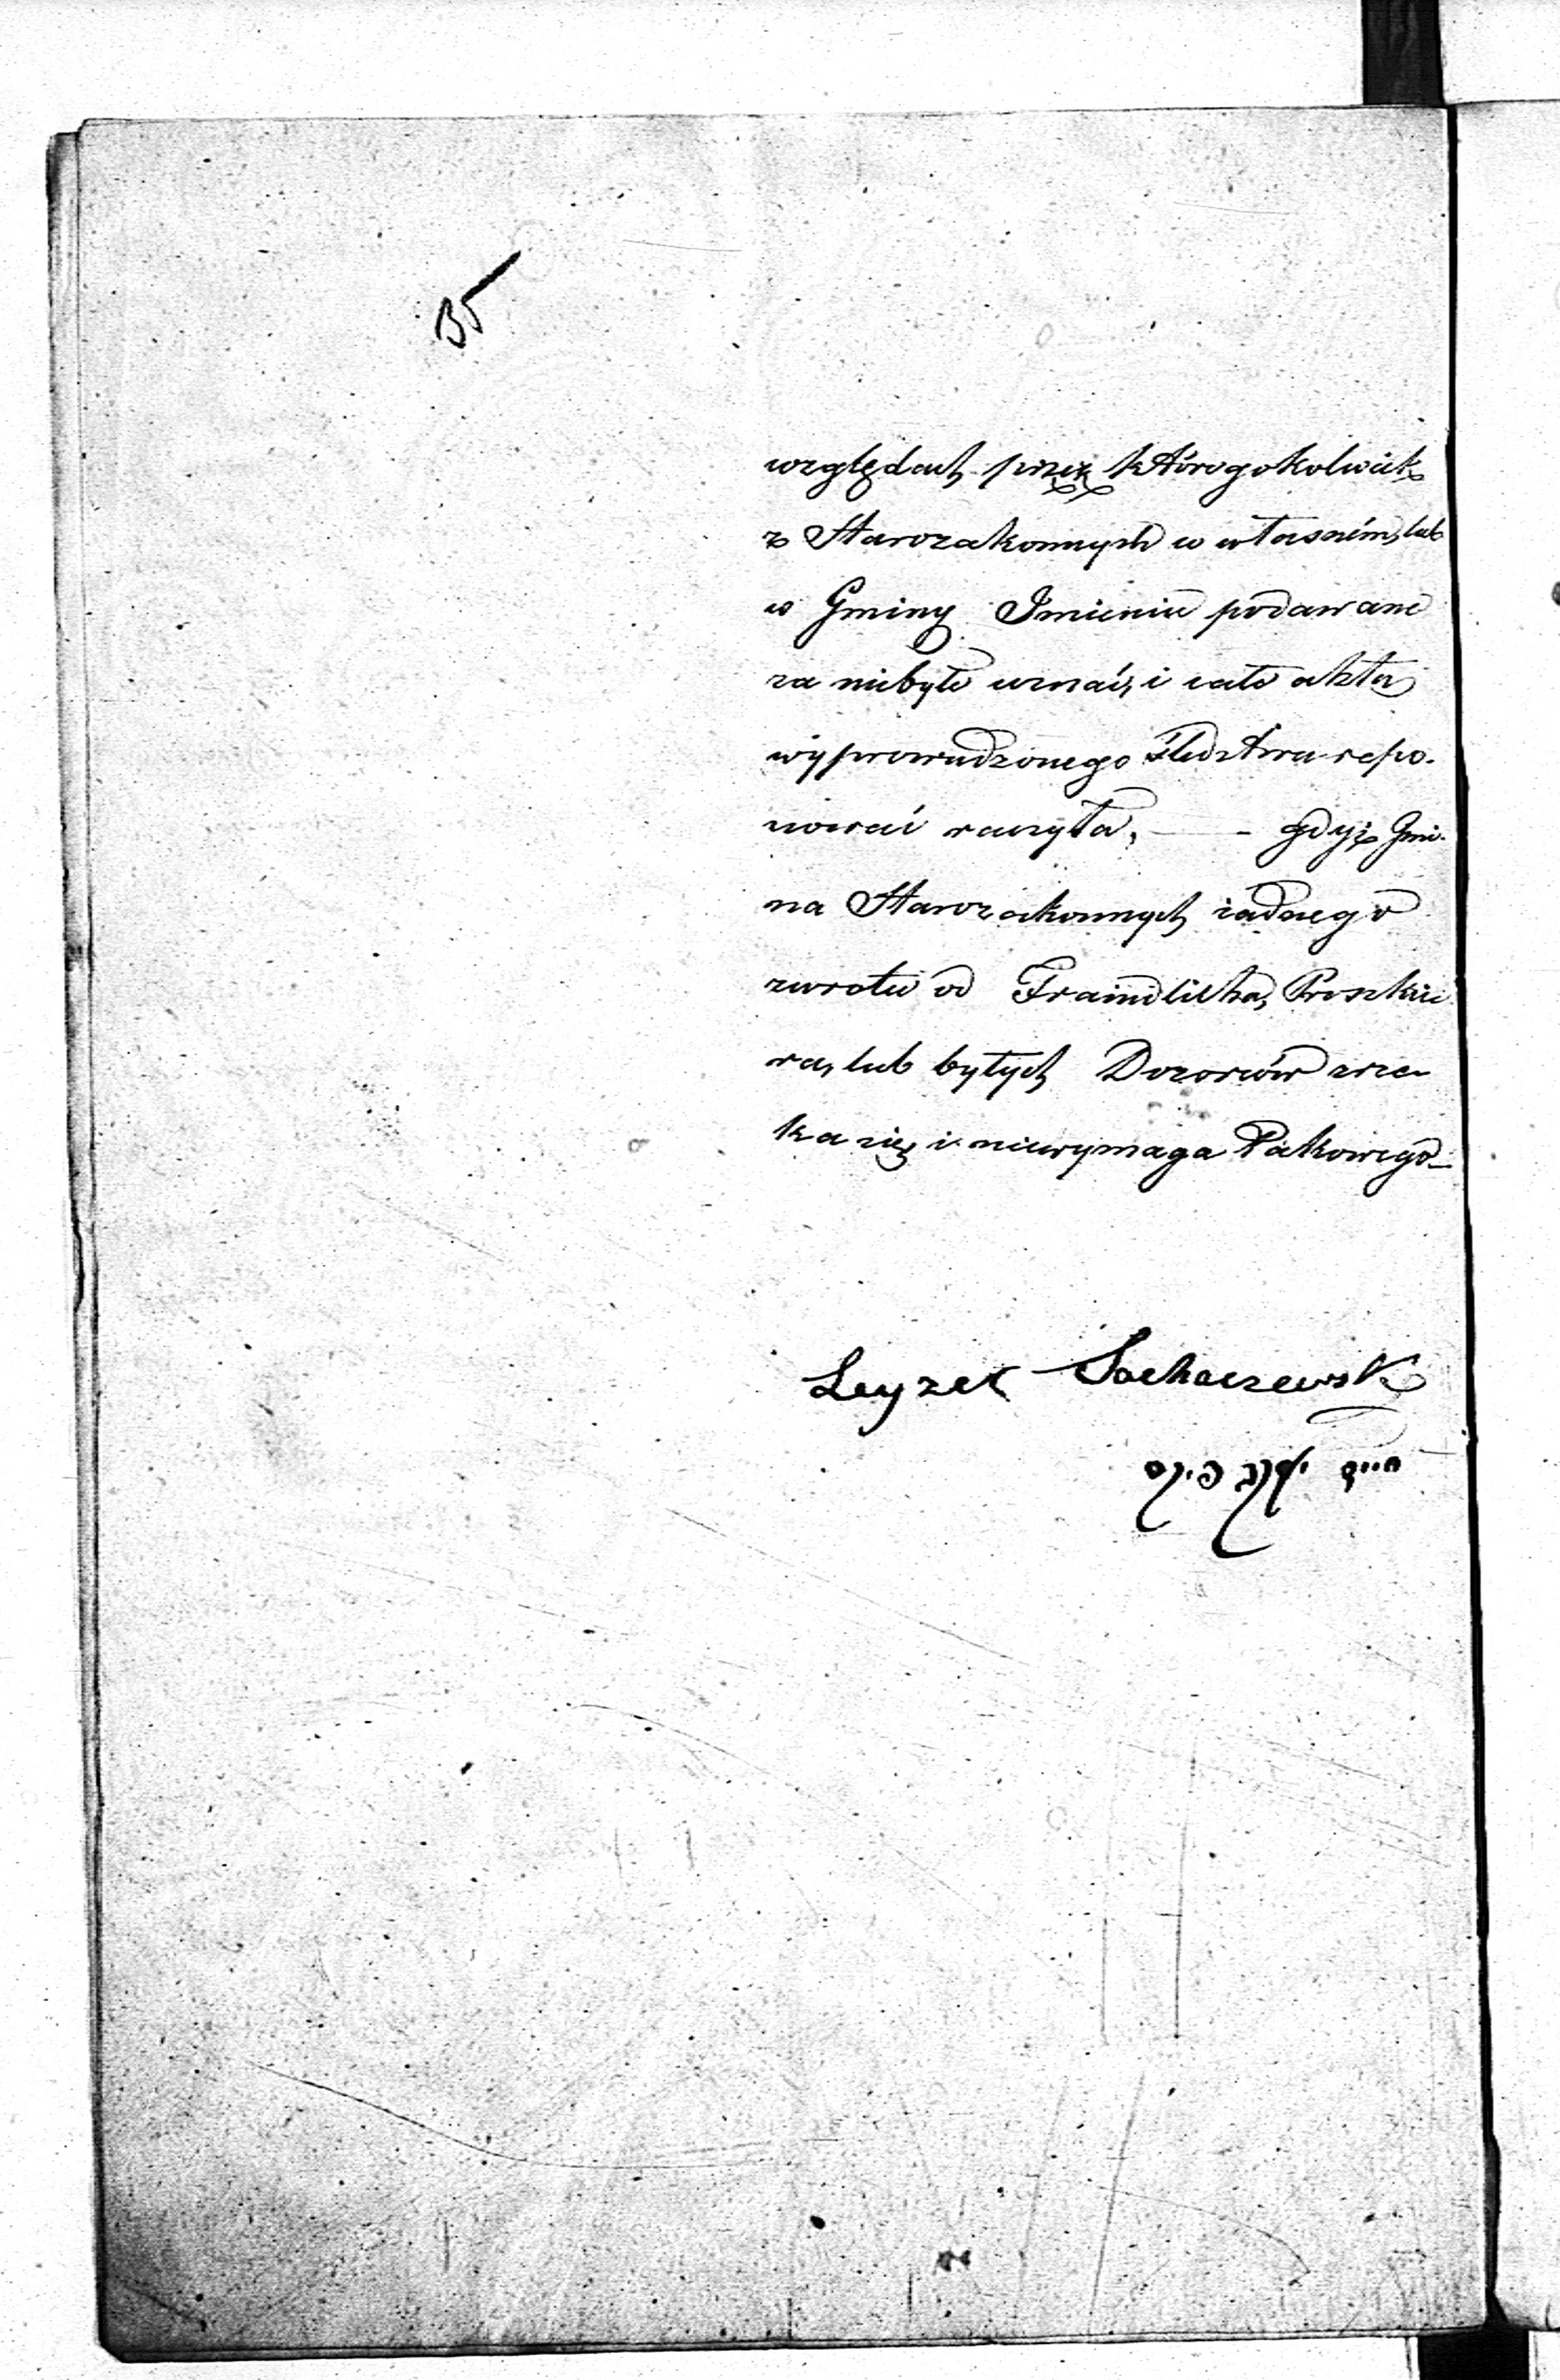 35
względach przez któregokolwiek
z Starozakonnych w własném, lub
w Gminy Imieniu podawane
za niebyłe uznać, i całe akta
wyprowadzonego Śledztwa repo-
nować raczyła, — - gdyż Gmi-
na Starozakonnych żadnego
zwrotu od Fraindlicha, Proszkie
ra, lub byłych Dozorców zrze-
ka się i niewymaga Takowego —
Leyzer Sochaczewski
חיים